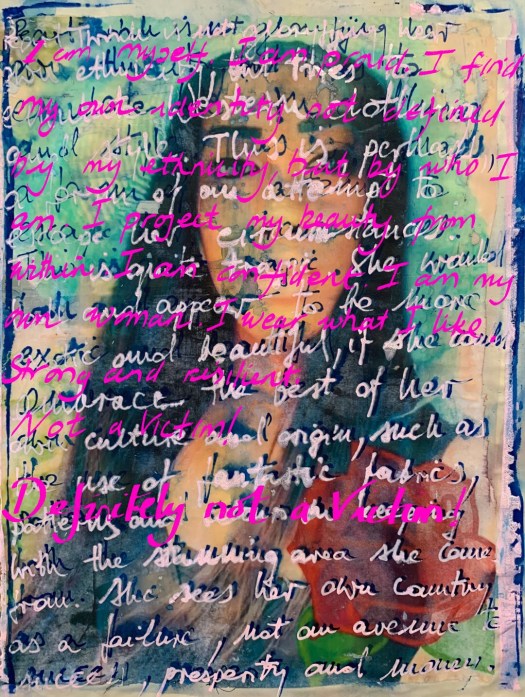 I am myself. I am proud. I find
my own identity not defined
by my ethnicity, but by who I
am. I project my beauty from
within. I am confident. I am my
own woman. I wear what I like.
Strong and resilient.
Not a victim!
Definitely not a Victim!
is not glorifying her
ethnicity, but tries to
and style. This is perhaps
a form of an attempt to
escape her circumstances.
is quite tragic. She would
and appear to be more
exotic and beautiful, if she could
embrace the best of her
own culture and origin, such as
the use of fantastic fabrics,
patterns and
with the stunning area she came
from. She sees her own country
as a failure, not an avenue to
success, prosperity and money.